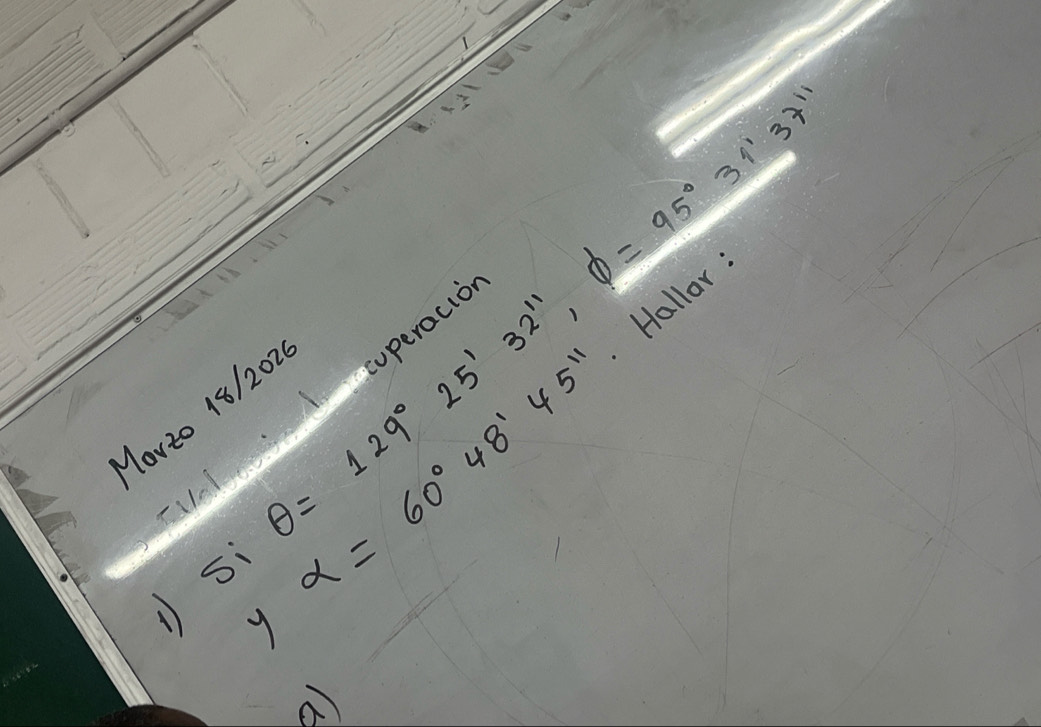 Marzo 18/2026
recuperación
1) Si θ = 129° 25' 32", ϕ = 95° 31' 37"
y α = 60° 48' 45". Hallar:
a)